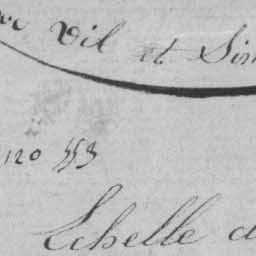 Vil et Sim
no 553
Echelle d